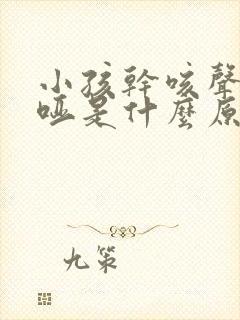 小孩幹咳聲
啞是什麼原
九策